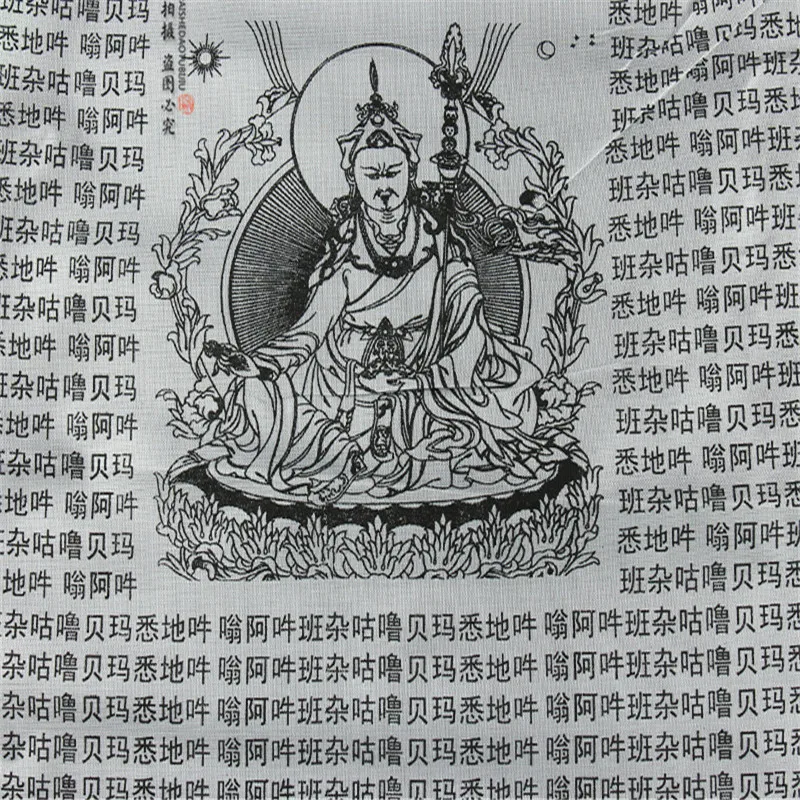 班杂咕噜贝玛
悉地吽 嗡阿吽
班杂咕噜贝玛
悉地吽 嗡阿吽
班杂咕噜贝玛
悉地吽 嗡阿吽
班杂咕噜贝玛
悉地吽 嗡阿吽
班杂咕噜贝玛
悉地吽 嗡阿吽
班杂咕噜贝玛
悉地吽 嗡阿吽
班杂咕噜贝玛
悉地吽 嗡阿吽
班杂咕噜贝玛
悉地吽 嗡阿吽
拍摄 盗图必究
悉地吽 嗡阿吽
班杂咕噜贝玛
悉地吽 嗡阿吽班杂
班杂咕噜贝玛悉
悉地吽 嗡阿吽班
班杂咕噜贝玛悉
悉地吽 嗡阿吽班
班杂咕噜贝玛悉
悉地吽 嗡阿吽班
班杂咕噜贝玛悉
悉地吽 嗡阿吽班
班杂咕噜贝玛悉
悉地吽 嗡阿吽班
班杂咕噜贝玛悉
悉地吽 嗡阿吽班
班杂咕噜贝玛悉
班杂咕噜贝玛悉地吽 嗡阿吽班杂咕噜贝玛悉地吽 嗡阿吽班杂咕噜贝玛悉
杂咕噜贝玛悉地吽 嗡阿吽班杂咕噜贝玛悉地吽 嗡阿吽班杂咕噜贝玛悉
杂咕噜贝玛悉地吽 嗡阿吽班杂咕噜贝玛悉地吽 嗡阿吽班杂咕噜贝玛悉
杂咕噜贝玛悉地吽 嗡阿吽班杂咕噜贝玛悉地吽 嗡阿吽班杂咕噜贝玛悉
杂咕噜贝玛悉地吽 嗡阿吽班杂咕噜贝玛悉地吽 嗡阿吽班杂咕噜贝玛悉